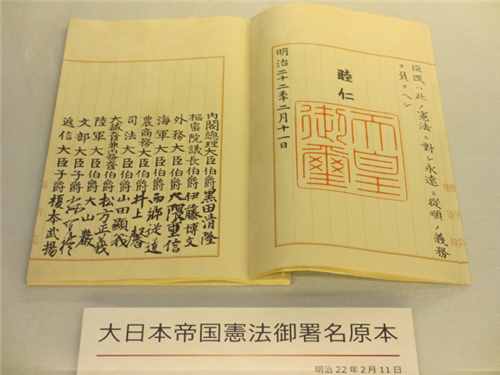 此ノ憲法ニ對シ永遠ニ從順ノ義務
ヲ負フヘシ
睦仁
天皇
御璽
明治二十二年二月十一日
内閣總理大臣伯爵黒田清隆
樞密院議長伯爵伊藤博文
外務大臣伯爵大隈重信
海軍大臣伯爵西郷從道
農商務大臣伯爵井上馨
司法大臣伯爵山田顯義
伯爵松方正義
陸軍大臣伯爵大山巖
文部大臣子爵
遞信大臣子爵榎本武揚
大日本帝国憲法御署名原本
明治22年2月11日